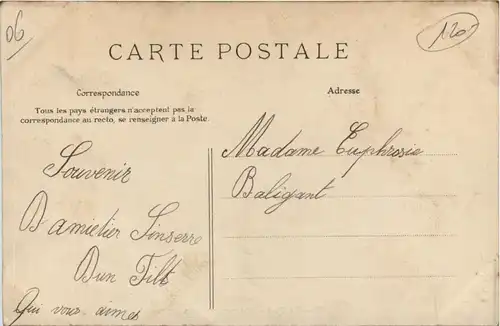 06
120
CARTE POSTALE
Correspondance
Adresse
Tous les pays étrangers n'acceptent pas la
correspondance au recto, se renseigner à la Poste.
Souvenir
Damielier Sinserre
Dun Filt
Qui vous aimes
Madame Euphrosie
Baligant